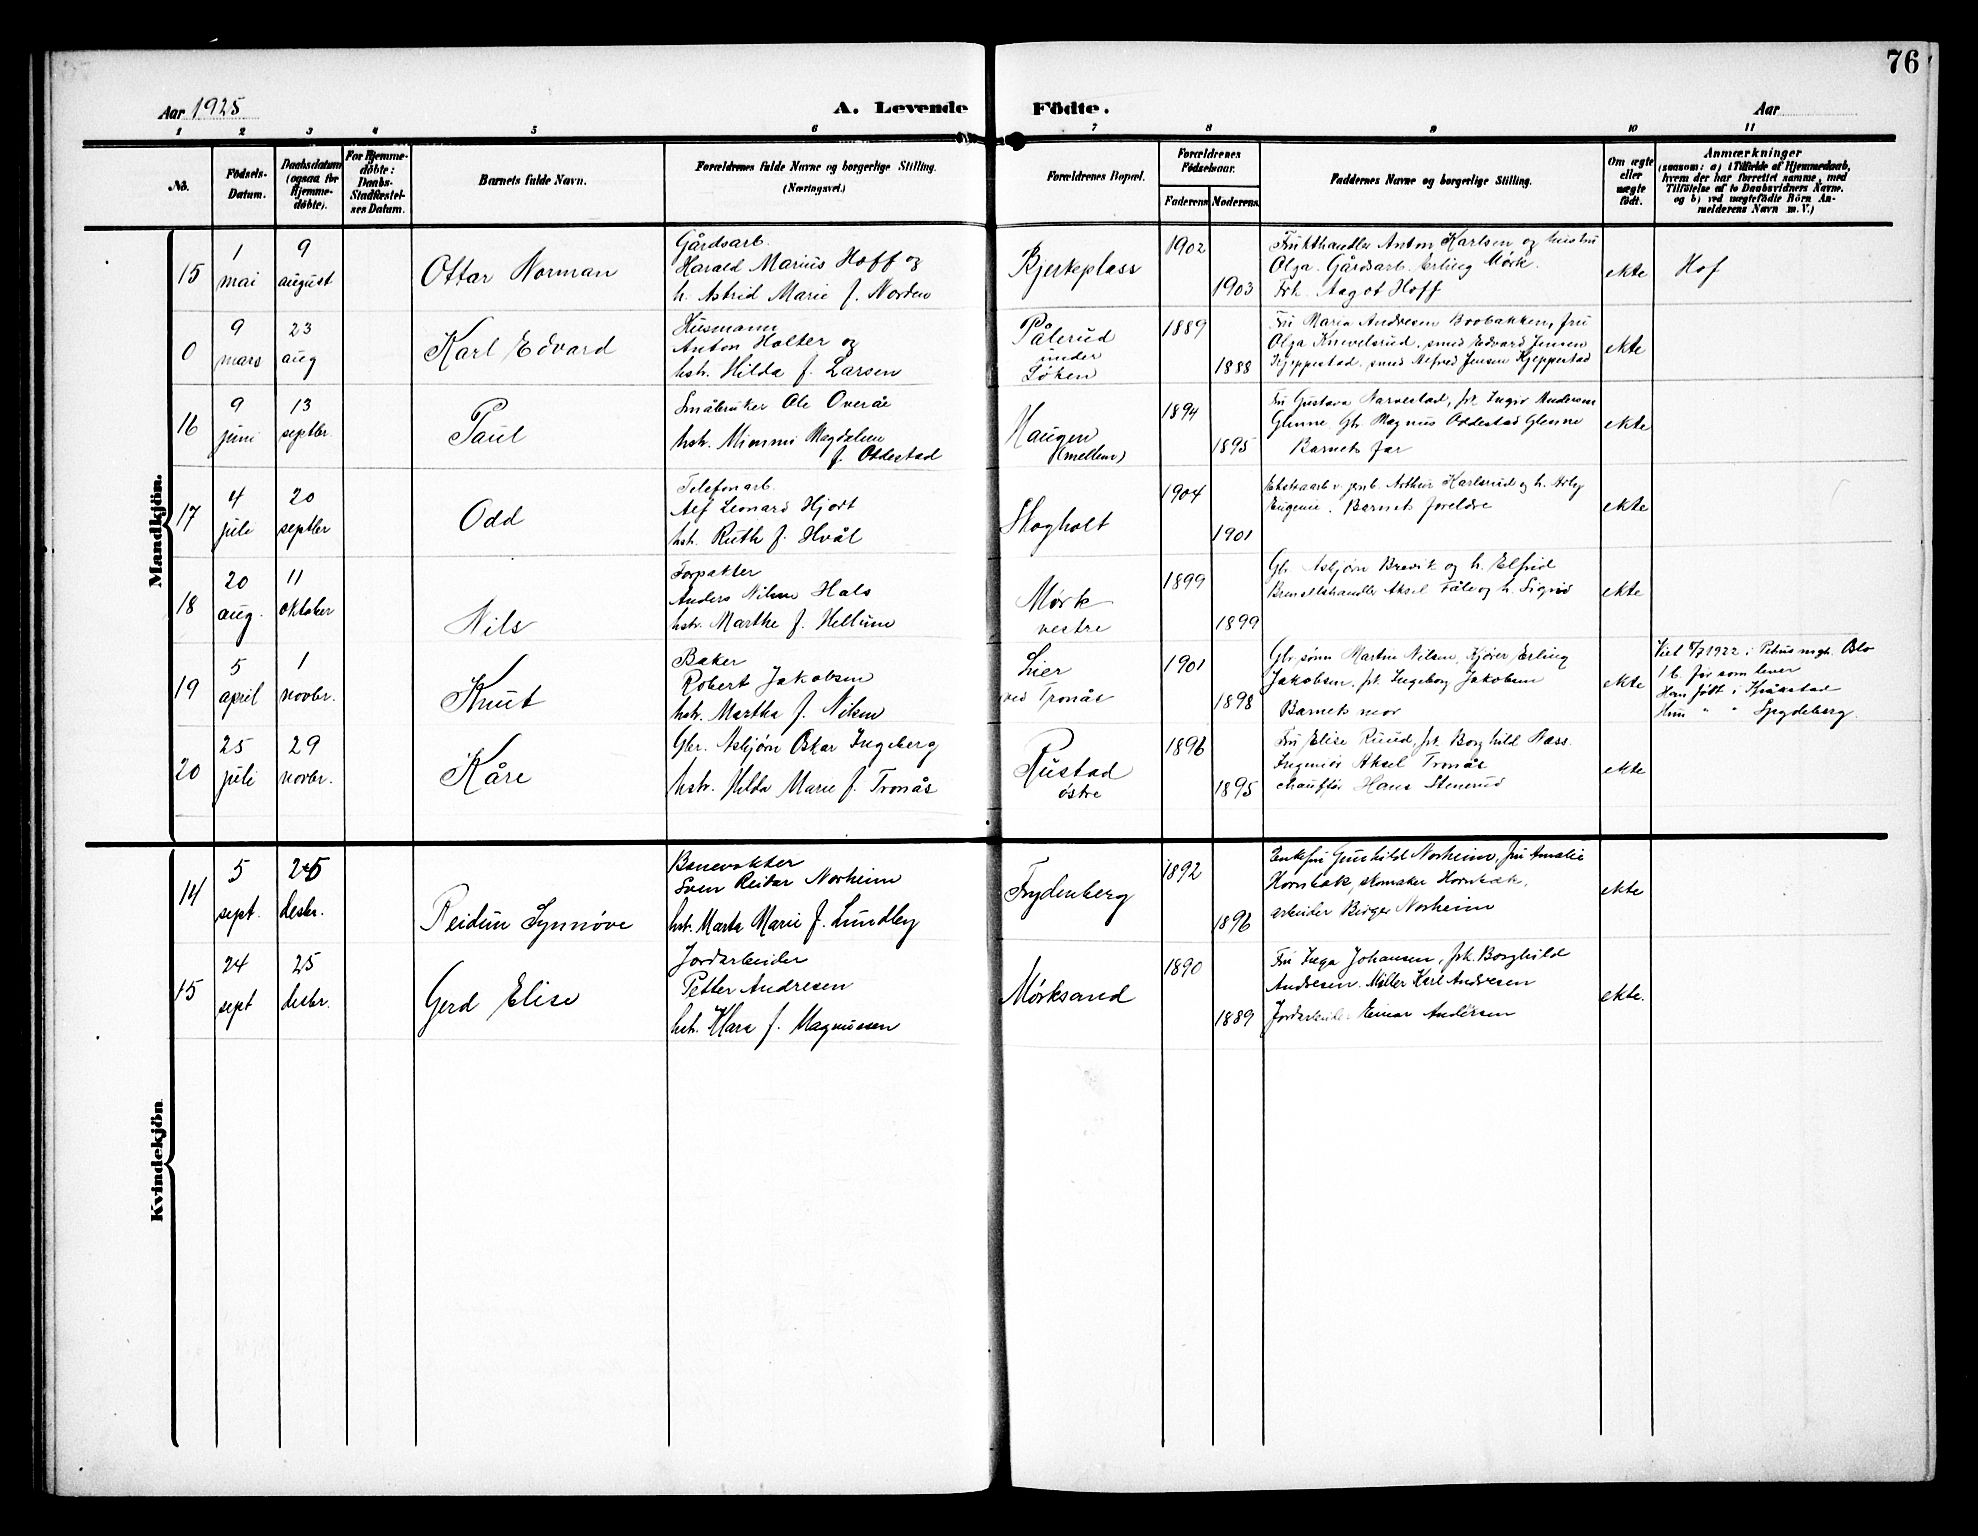 76
Aar 1925
A. Levende Födte.
Aar
1 2 3 4 5 6 7 8 9 10 11
No.
Födsels-Datum.
Daabsdatum (ogsaa for Hjemme-döbte).
For Hjemme-döbte: Daabs-Stadfæstel-ses Datum.
Barnets fulde Navn.
Forældrenes fulde Navne og borgerlige Stilling. (Næringsvei.)
Forældrenes Bopæl.
Forældrenes Födselsaar.
Faderens Moderens
Faddernes Navne og borgerlige Stilling.
Om ægte eller uægte födt.
Anmærkninger
(saasom: a) i Tilfælde af Hjemmedaab, hvem der har forrettet samme, med Tilföielse af to Daabsvidners Navne. og b) ved uægtefödte Börn An-melderens Navn m. V.)
Mandkjön.
15
1 mai
9 august
Ottar Norman
Gårdsarb.
Harald Marius Hoff og
h. Astrid Marie f. Norden
Bjerkeplass
1902
1903
Frukthandler Anton Karlsen og hustru
Olga. Gårdsarb. Erling Mørk.
Frk. Aagot Hoff
ekte
Hof
0
9 mars
23 aug
Karl Edvard
Husmann
Anton Holter og
hstr. Hilda f. Larsen
Pålerud
under
Løken
1889
1888
Fru Maria Andresen Boobakken, fru
Olga Knivelsrud, smed Edvard Jensen
Kjeppestad, smed Alfred Jensen Kjeppestad
ekte
16
9 juni
13 septbr.
Paul
Småbruker Ole Overåe
hstr. Mimmi Magdalen
f. Oddestad
Haugen
(mellem)
1894
1895
Fru Gustava Narvestad, frk. Ingrid Andersen
Glenne Gbr. Magnus Oddestad Glenne
Barnets far
ekte
17
4 juli
20 septbr
Odd
Telefonarb.
Alf Leonard Hjort
hstr. Ruth f. Hvål
Skogholt
1904
1901
Ekstraarb. v. jernb. Arthur Karlsrud og h.
Eugenie. Barnets foreldre
ekte
18
20 aug.
11 oktober
Nils
Forpakter
Anders Nilsen Hals
hstr. Marthe f. Hellum
Mørk
vestre
1899
1899
Gbr. Asbjørn Brevik og h. Elfrid
Brenselshandler Aksel Fåle og h. Sigrid
ekte
19
5 april
1 novbr.
Knut
Baker
Robert Jakobsen
hstr. Martha f. Nilsen
Lier
ved Tronås
1901
1898
Gbr. sønn Martin Nilsen, Kjører Erling
Jakobsen, frk. Ingeborg Jakobsen
Barnets mor
ekte
Viet 1922 i Petrus mgh. Oslo
1 b. før som lever
Han født i Kråkstad
Hun " " Spydeberg.
20
25 juli
29 novbr.
Kåre
Gbr. Asbjørn Oskar Ingeberg
hstr. Hilda Marie f. Tronås
Rustad
østre
1896
1895
Fru Elise Ruud, frk. Borghild Næss.
Ingeniør Aksel Tronås
chauffør Hans Stenerud
ekte
Kvindekjön
14
5 sept.
25 desbr.
Reidun Synnøve
Banevokter
Sven Reidar Norheim
hstr. Marta Marie f. Lundby
Frydenberg
1892
1896
Enkefru Gunhild Norheim, fru Amalie
Hornbæk, skomaker Hornbæk,
arbeider Birger Norheim
ekte
15
24 sept
25 desbr.
Gerd Elise
Jordarbeider
Petter Andresen
hstr. Klara f. Magnussen
Mørksand
1890
1889
Fru Inga Johansen, frk. Borghild
Andresen. Møller Karl Andresen
Jordarbeider Einar Andersen
ekte.